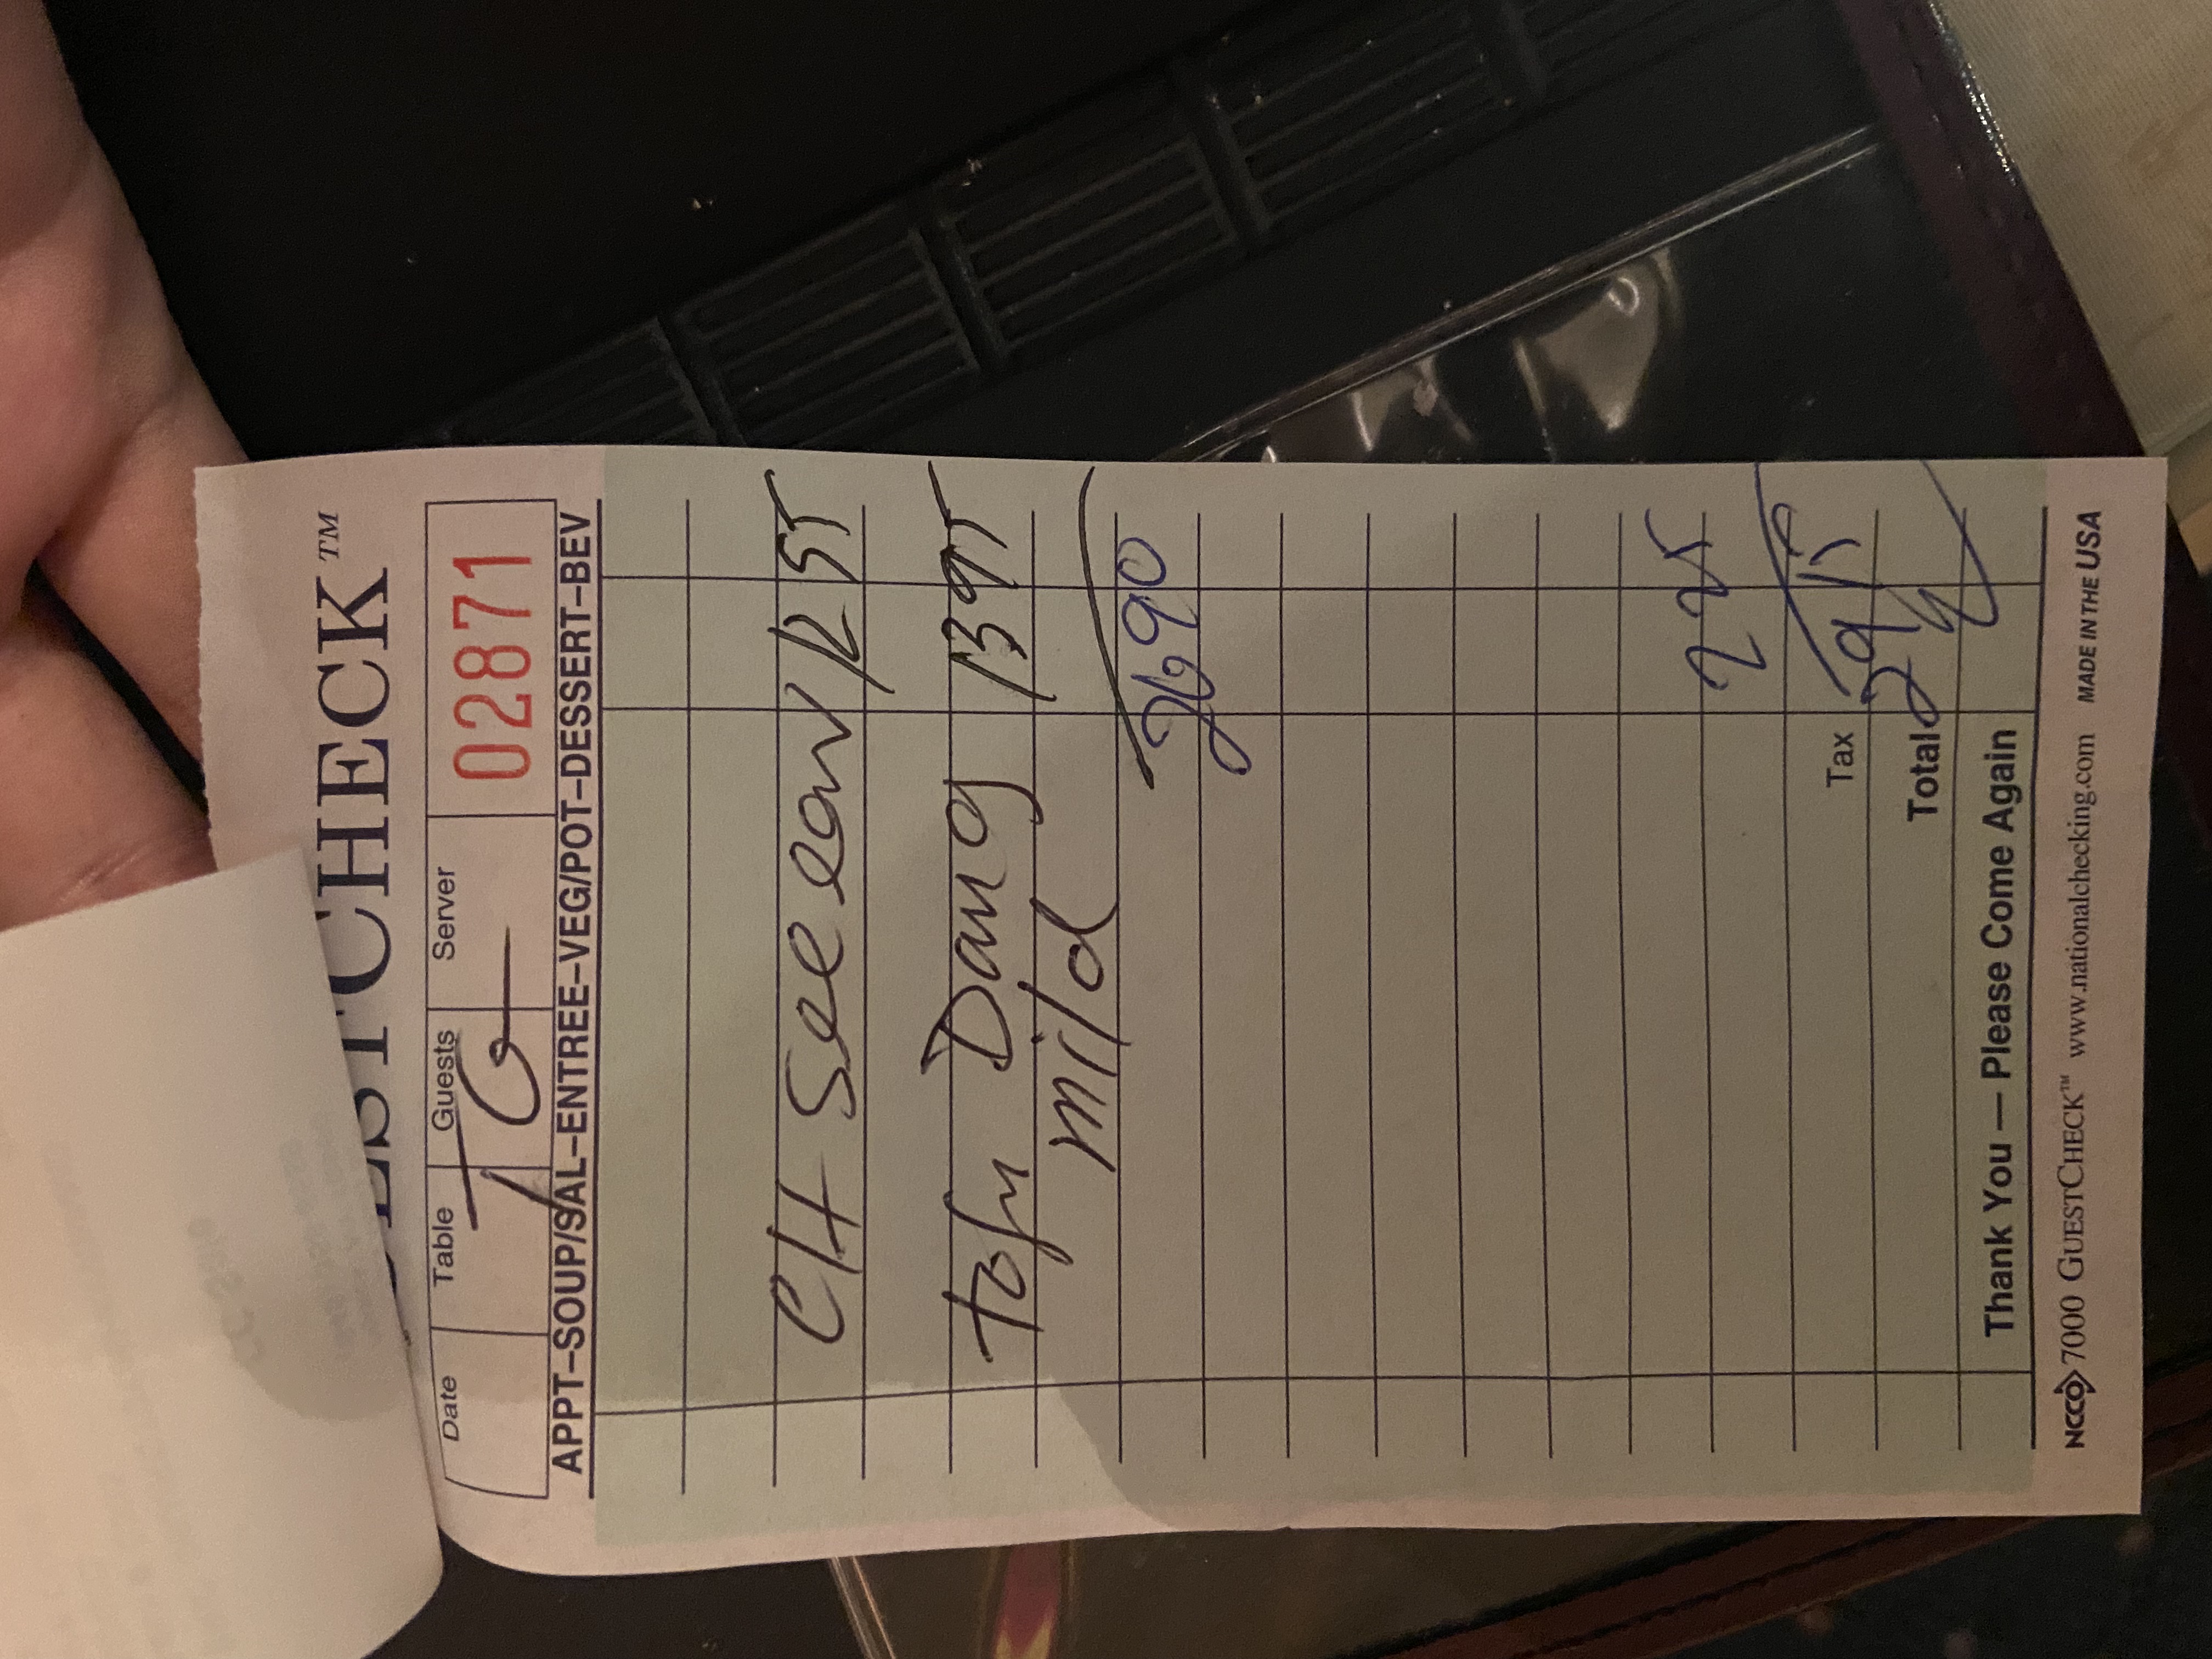 ESTCHECK™
Date Table Guests Server
TG 02871
APPT–SOUP/SAL–ENTREE–VEG/POT–DESSERT–BEV
CH see ew 12 95
tofu Dang 13 95
mild
26 90
2 25
Tax
29 15
Total
Thank You — Please Come Again
NCCO 7000 GUESTCHECK™ www.nationalchecking.com MADE IN THE USA